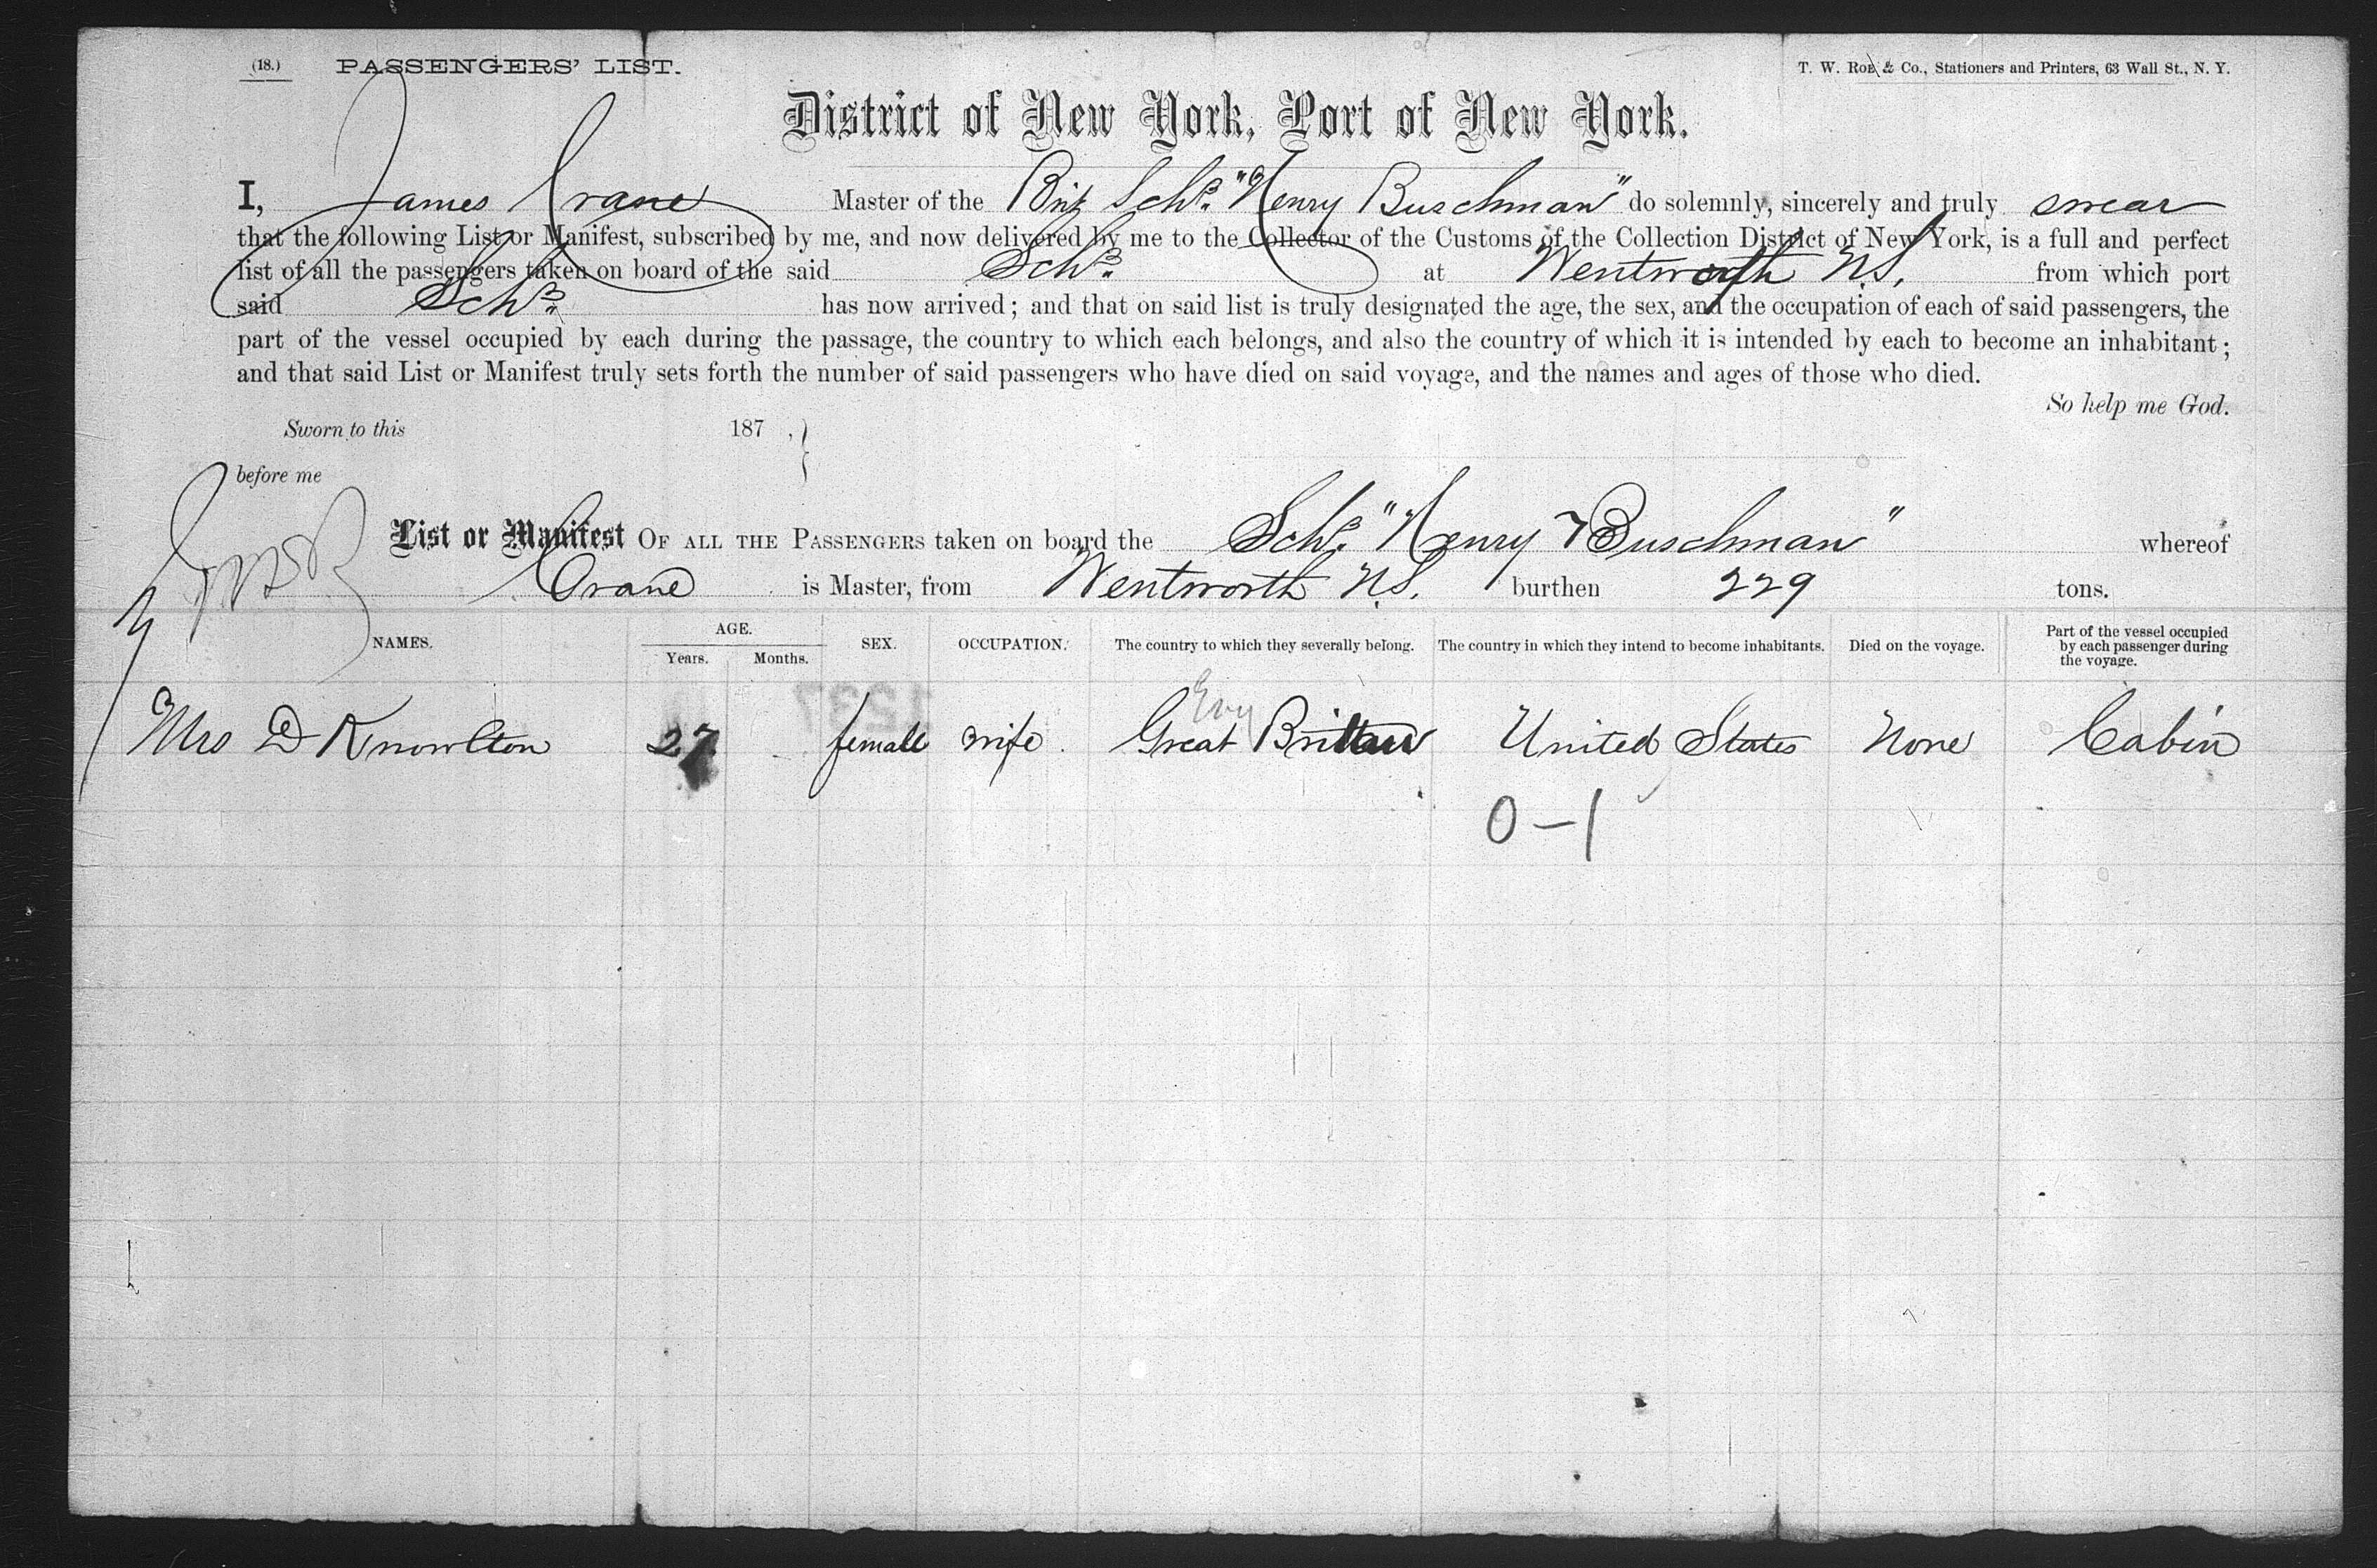 (18.) PASSENGERS' LIST. T. W. ROE & Co., Stationers and Printers, 63 Wall St., N. Y.
District of New York, Port of New York.
I, James Crane Master of the Brit Schr. "Henry Buschman" do solemnly, sincerely and truly swear
that the following List or Manifest, subscribed by me, and now delivered by me to the Collector of the Customs of the Collection District of New York, is a full and perfect
list of all the passengers taken on board of the said Schr. at Wentworth N.S. from which port
said Schr. has now arrived; and that on said list is truly designated the age, the sex, and the occupation of each of said passengers, the
part of the vessel occupied by each during the passage, the country to which each belongs, and also the country of which it is intended by each to become an inhabitant;
and that said List or Manifest truly sets forth the number of said passengers who have died on said voyage, and the names and ages of those who died.
So help me God.
Sworn to this 187 ,
before me
List or Manifest OF ALL THE PASSENGERS taken on board the Schr. "Henry Buschman" whereof
Crane is Master, from Wentworth N.S. burthen 229 tons.
NAMES. AGE. Years. Months. SEX. OCCUPATION. The country to which they severally belong. The country in which they intend to become inhabitants. Died on the voyage. Part of the vessel occupied by each passenger during the voyage.
1237
Mrs D Knowlton 27 female wife Great Brittain United States None Cabin
0-1